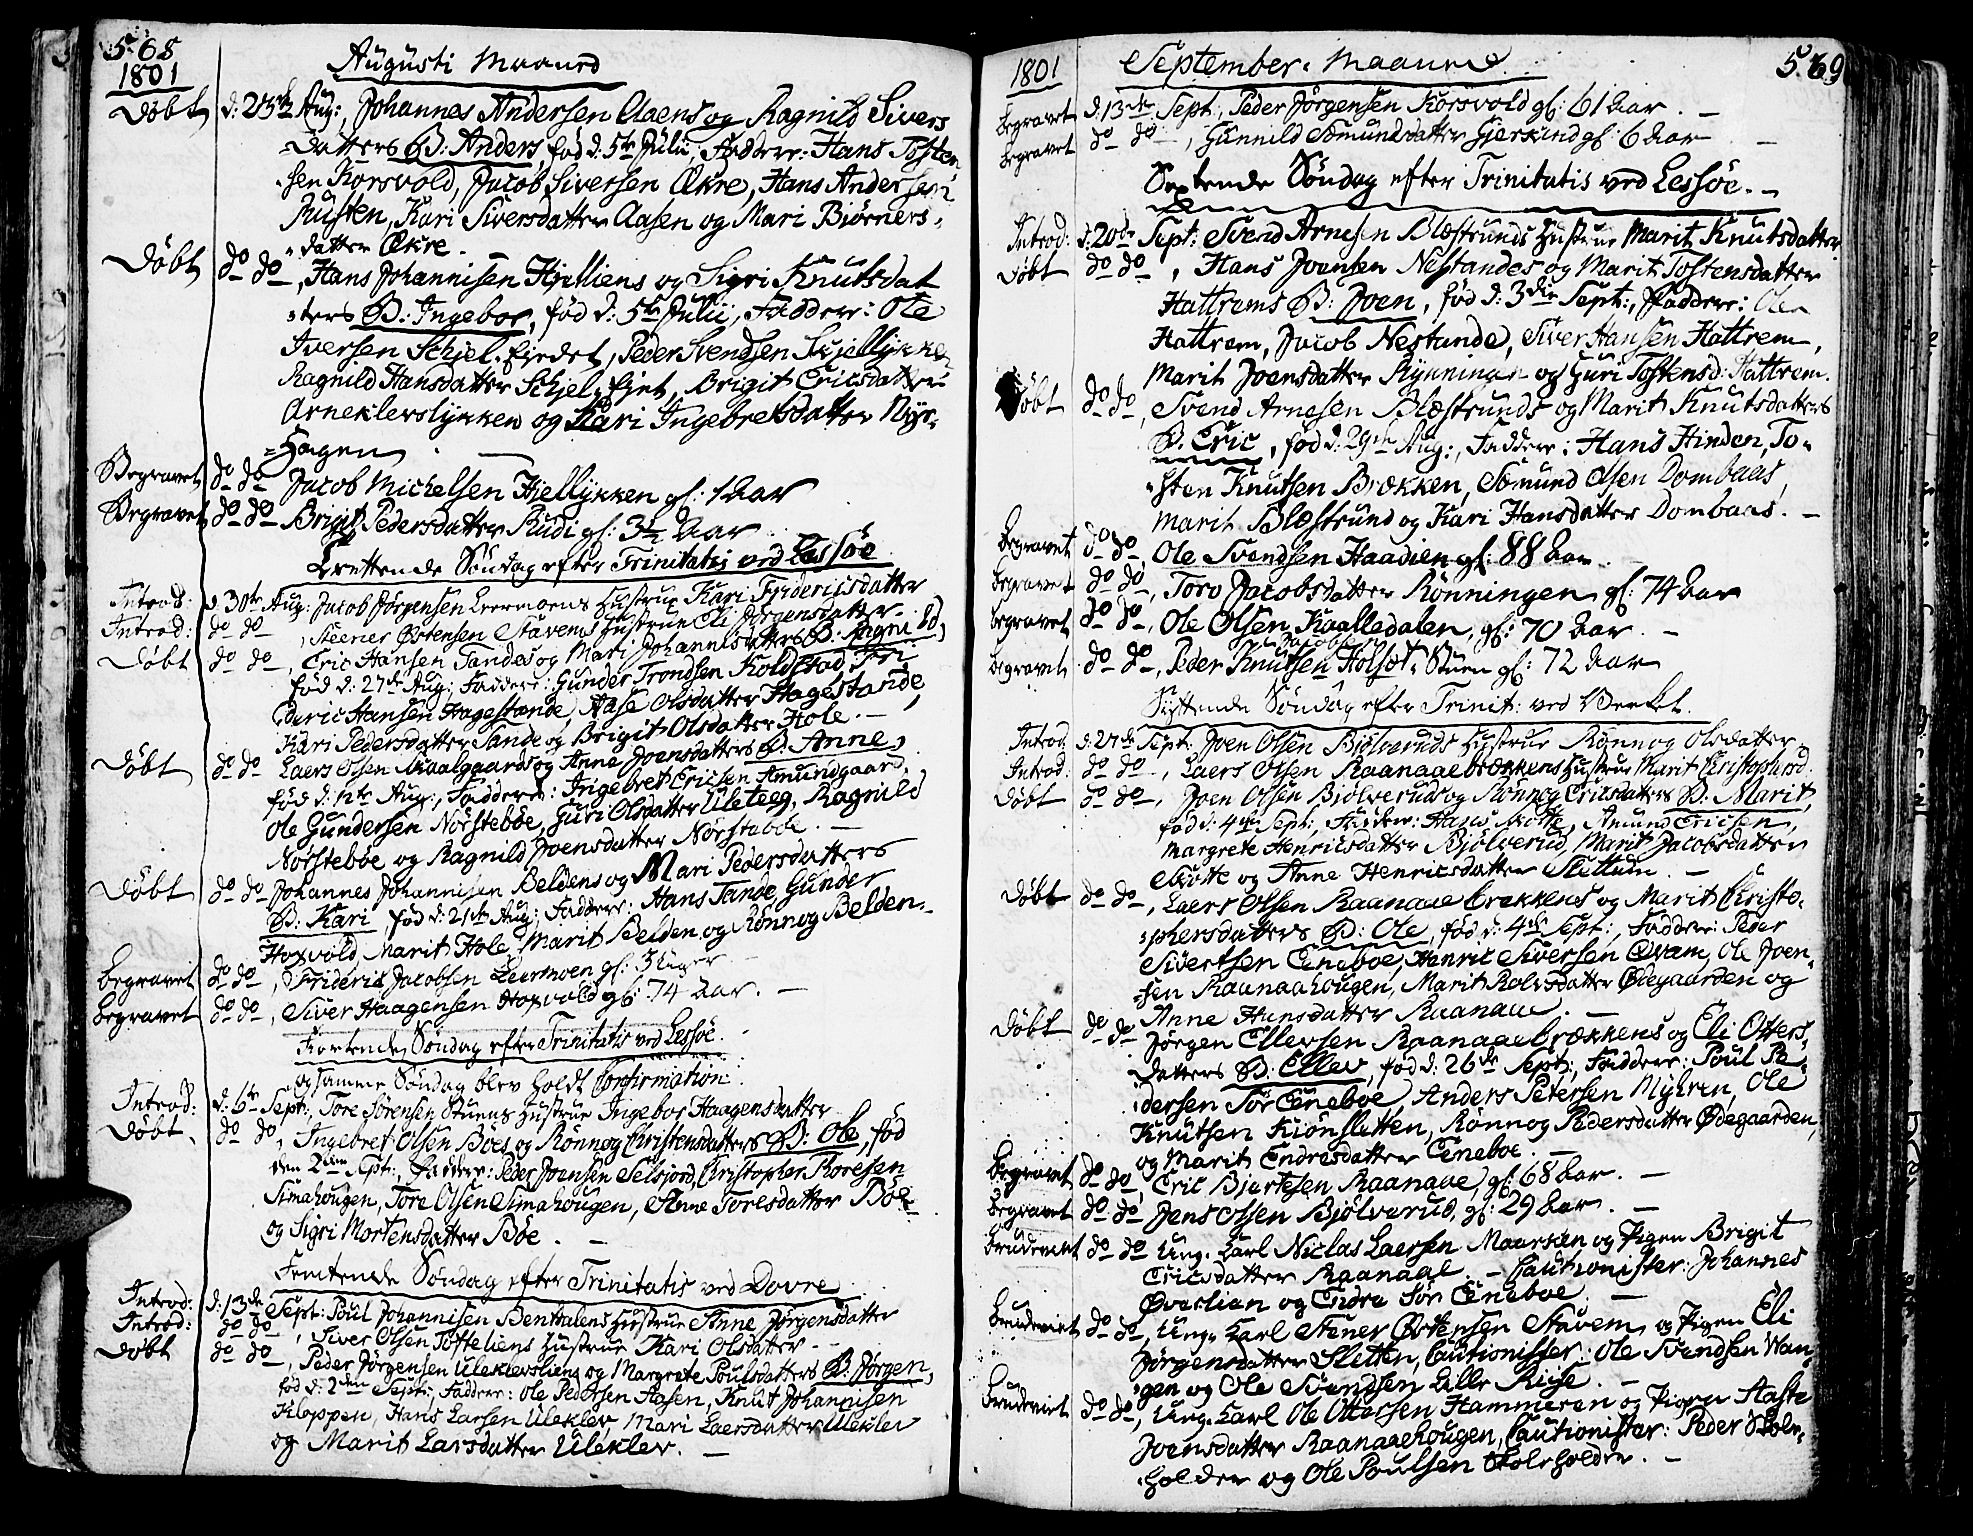 568
1801
Augusti Maaned
Døbt d: 23de Aug:, Johannes Andersen Aaens og Ragnild Sivers
datters B: Anders, fød d: 5te Julii, Faddere: Hans Tosten
sen Korsvold, Jacob Siversen Ækre, Hans Andersen
Rusten, Kari Siversdatter Aasen og Mari Biørners-
datter Ækre.
Døbt do do, Hans Johannisen Hjelliens og Sigri Knutsdat
ters B: Ingebor, fød d: 5te Julii, Faddere: Ole
Iversen Schjel-fjedet, Peder Svendsen Skjellykken
Ragnild Hansdatter Schjel-fjet, Brigit Ericsdatter
Arneklevslykken og Kari Ingebretsdatter Nyr-
Hagen
Begravet do do Jacob Michelsen Hiellykken gl: 1 Aar
Begravet do do Brigit Pedersdatter Rudi gl: 3½ Aar
Trettende Søndag efter Trinitatis ved Lessøe
Introd: d: 30te Aug: Jacob Jørgensen Leermoens Hustrue Kari Friderichsdatter
Introd: do do, Steener Østensen Stavems Hustrue Eli Jørgensdatter
Døbt do do, Eric Hansen Sandes og Mari Johannisdatters B: Ragnild,
fød d: 27de Aug: Faddere: Gunder Trondsen Koldstad, Fri
deric Hansen Hagestande, Aase Olsdatter Hagestande,
Kari Pedersdatter Sande og Brigit Olsdatter Hole.
Døbt do do Laers Olsen Skaalgaards og Anne Joensdatters B: Anne,
fød d: 12te Aug:, Faddere: Ingebret Ericsen Amundgaard,
Ole Gundersen Nørstebøe, Guri Olsdatter Uleteeg, Ragnild
Nørstebøe og Ragnild Joensdatter Nørstebøe.
Døbt do do Johannes Johannisen Beldens og Mari Pedersdatters
B: Kari, fød d: 21de Aug: Faddere: Hans Sande, Gunder
Hoxvold, Marit Hole, Marit Belden og Rønnog Belden.
Begravet do do, Frideric Jacobsen Leermoen gl: 3 Uger
Begravet do do, Siver Haagensen Hoxvold gl: 74 Aar.
Fiortende Søndag efter Trinitatis ved Lessøe.
og samme Søndag blev holdt Confirmation.
Introd: d: 6te Sept:, Tore Sørensen Stuens Hustrue Ingebor Haagensdatter
Døbt do do, Ingebret Olsen Bøes og Rønnog Christensdatters B: Ole, fød
den 2den Sept:, Faddere: Peder Joensen Selsjord, Christopher Toresen
Simahougen, Tore Olsen Simahougen, Anne Toresdatter Bøe
og Sigri Mortensdatter Bøe.
Femtende Søndag efter Trinitatis ved Dovre
Introd: d: 13de Sept: Poul Johannisen Benthalens Hustrue Anne Jørgensdatter
Introd: do do, Siver Olsen Tofteliens Hustrue Kari Olsdatter
Døbt do do, Peder Jørgensen Uleklevsliens og Margrete Poulsdatters B: Jørgen,
fød d: 2den Sept:, Faddere: Ole Pedersen Aasen, Knut Johannisen
Kloppen, Hans Larsen Ulekler, Mari Laersdatter Ulekler
og Marit Larsdatter Ulekler.
569
1801
September Maaned
Begravet d: 13de Sept: Peder Jørgensen Korsvold gl: 61 Aar.
Begravet do do, Gunnild Somundsdatter Gjerskind gl: 6 Aar
Sextende Søndag efter Trinitatis ved Lessøe.
Introd: d: 20de Sept: Svend Arnesen Blæstrunds Hustrue Marit Knutsdatter
Døbt do do, Hans Joensen Nestandes og Marit Tostensdatter
Hattrems B: Joen, fød d: 3die Sept:, Faddere: Ole
Hattrem, Jacob Nestande, Siver Hansen Hattrem,
Marit Joensdatter Rynningen og Guri Tostensd: Hattrem.
Døbt do do, Svend Arnesen Blæstrunds og Marit Knutsdatters
B: Eric, fød d: 29de Aug:, Faddere: Hans Hinden, To-
sten Knutsen Brækken, Somund Olsen Dombaas,
Marit Blæstrund og Kari Hansdatter Dombaas.
Begravet do do, Ole Svendsen Haadien gl: 88 Aar
Begravet do do, Toro Jacobsdatter Rønningen gl: 74 Aar
Begravet do do, Ole Olsen Kaalledalen, gl: 70 Aar.
Jacobsen
Begravet do do, Peder Knutsen Holset-Stuen gl: 72 Aar
Syttende Søndag efter Trinit: ved Verket.
Introd d: 27de Sept: Joen Olsen Bjølveruds Hustrue Rønnog Olsdatter
Introd: do do, Laers Olsen Raanaaebrækkens Hustrue Marit Christophersd:
Døbt do do, Joen Olsen Bjølveruds og Rønnog Ericsdatters B: Marit,
fød d: 4de Sept:, Faddere: Hans Skotte, Amund Ericsen,
Margrete Henricsdatter Bjølverud, Marit Jacobsdatter
Skotte og Anne Henricsdatter Slettum.
Døbt do do, Laers Olsen Raanaaebrekkens og Marit Christo-
phersdatters B: Ole, fød d: 4de Sept:, Faddere: Peder
Sivertsen Eneboe, Henric Siversen Qvam, Ole Joen-
sen Raanaahougen, Marit Rolvsdatter Ødegaarden og
Anne Hansdatter Raanaae.
Døbt do do Jørgen Ellevsen Raanaaebrækkens og Eli Otters-
datters B: Ellev, fød d: 26de Sept:, Faddere: Poul Pe-
dersen Sør Eneboe, Anders Petersen Myhren, Ole
Knutsen Kiønsletten, Rønnog Pedersdatter Ødegaarden,
og Marit Endresdatter Eneboe.
Begravet do do, Eric Bjertesen Raanaae, gl: 68 Aar.
Begravet do do Jens Olsen Bjølverud, gl: 29 Aar.
Brudeviet do do Ung-Karl Niclas Laersen Maursen og Pigen Brigit
Ericsdatter Raanaae. - Cautionister: Johannes
Øverlian og Endre Sør Eneboe.
Brudeviet do do, Ung-Karl Stener Østensen Stavem og Pigen Eli
Jørgensdatter Sletten, Cautionister: Ole Svendsen Wan-
gen og Ole Svendsen Lille Riise.
Brudeviet do do, Ung-Karl Ole Ottersen Hammeren og Pigen Aaste
Joensdatter Raanaaehougen, Cautionister: Peder Skole-
holder og Ole Poulsen Skoleholder.